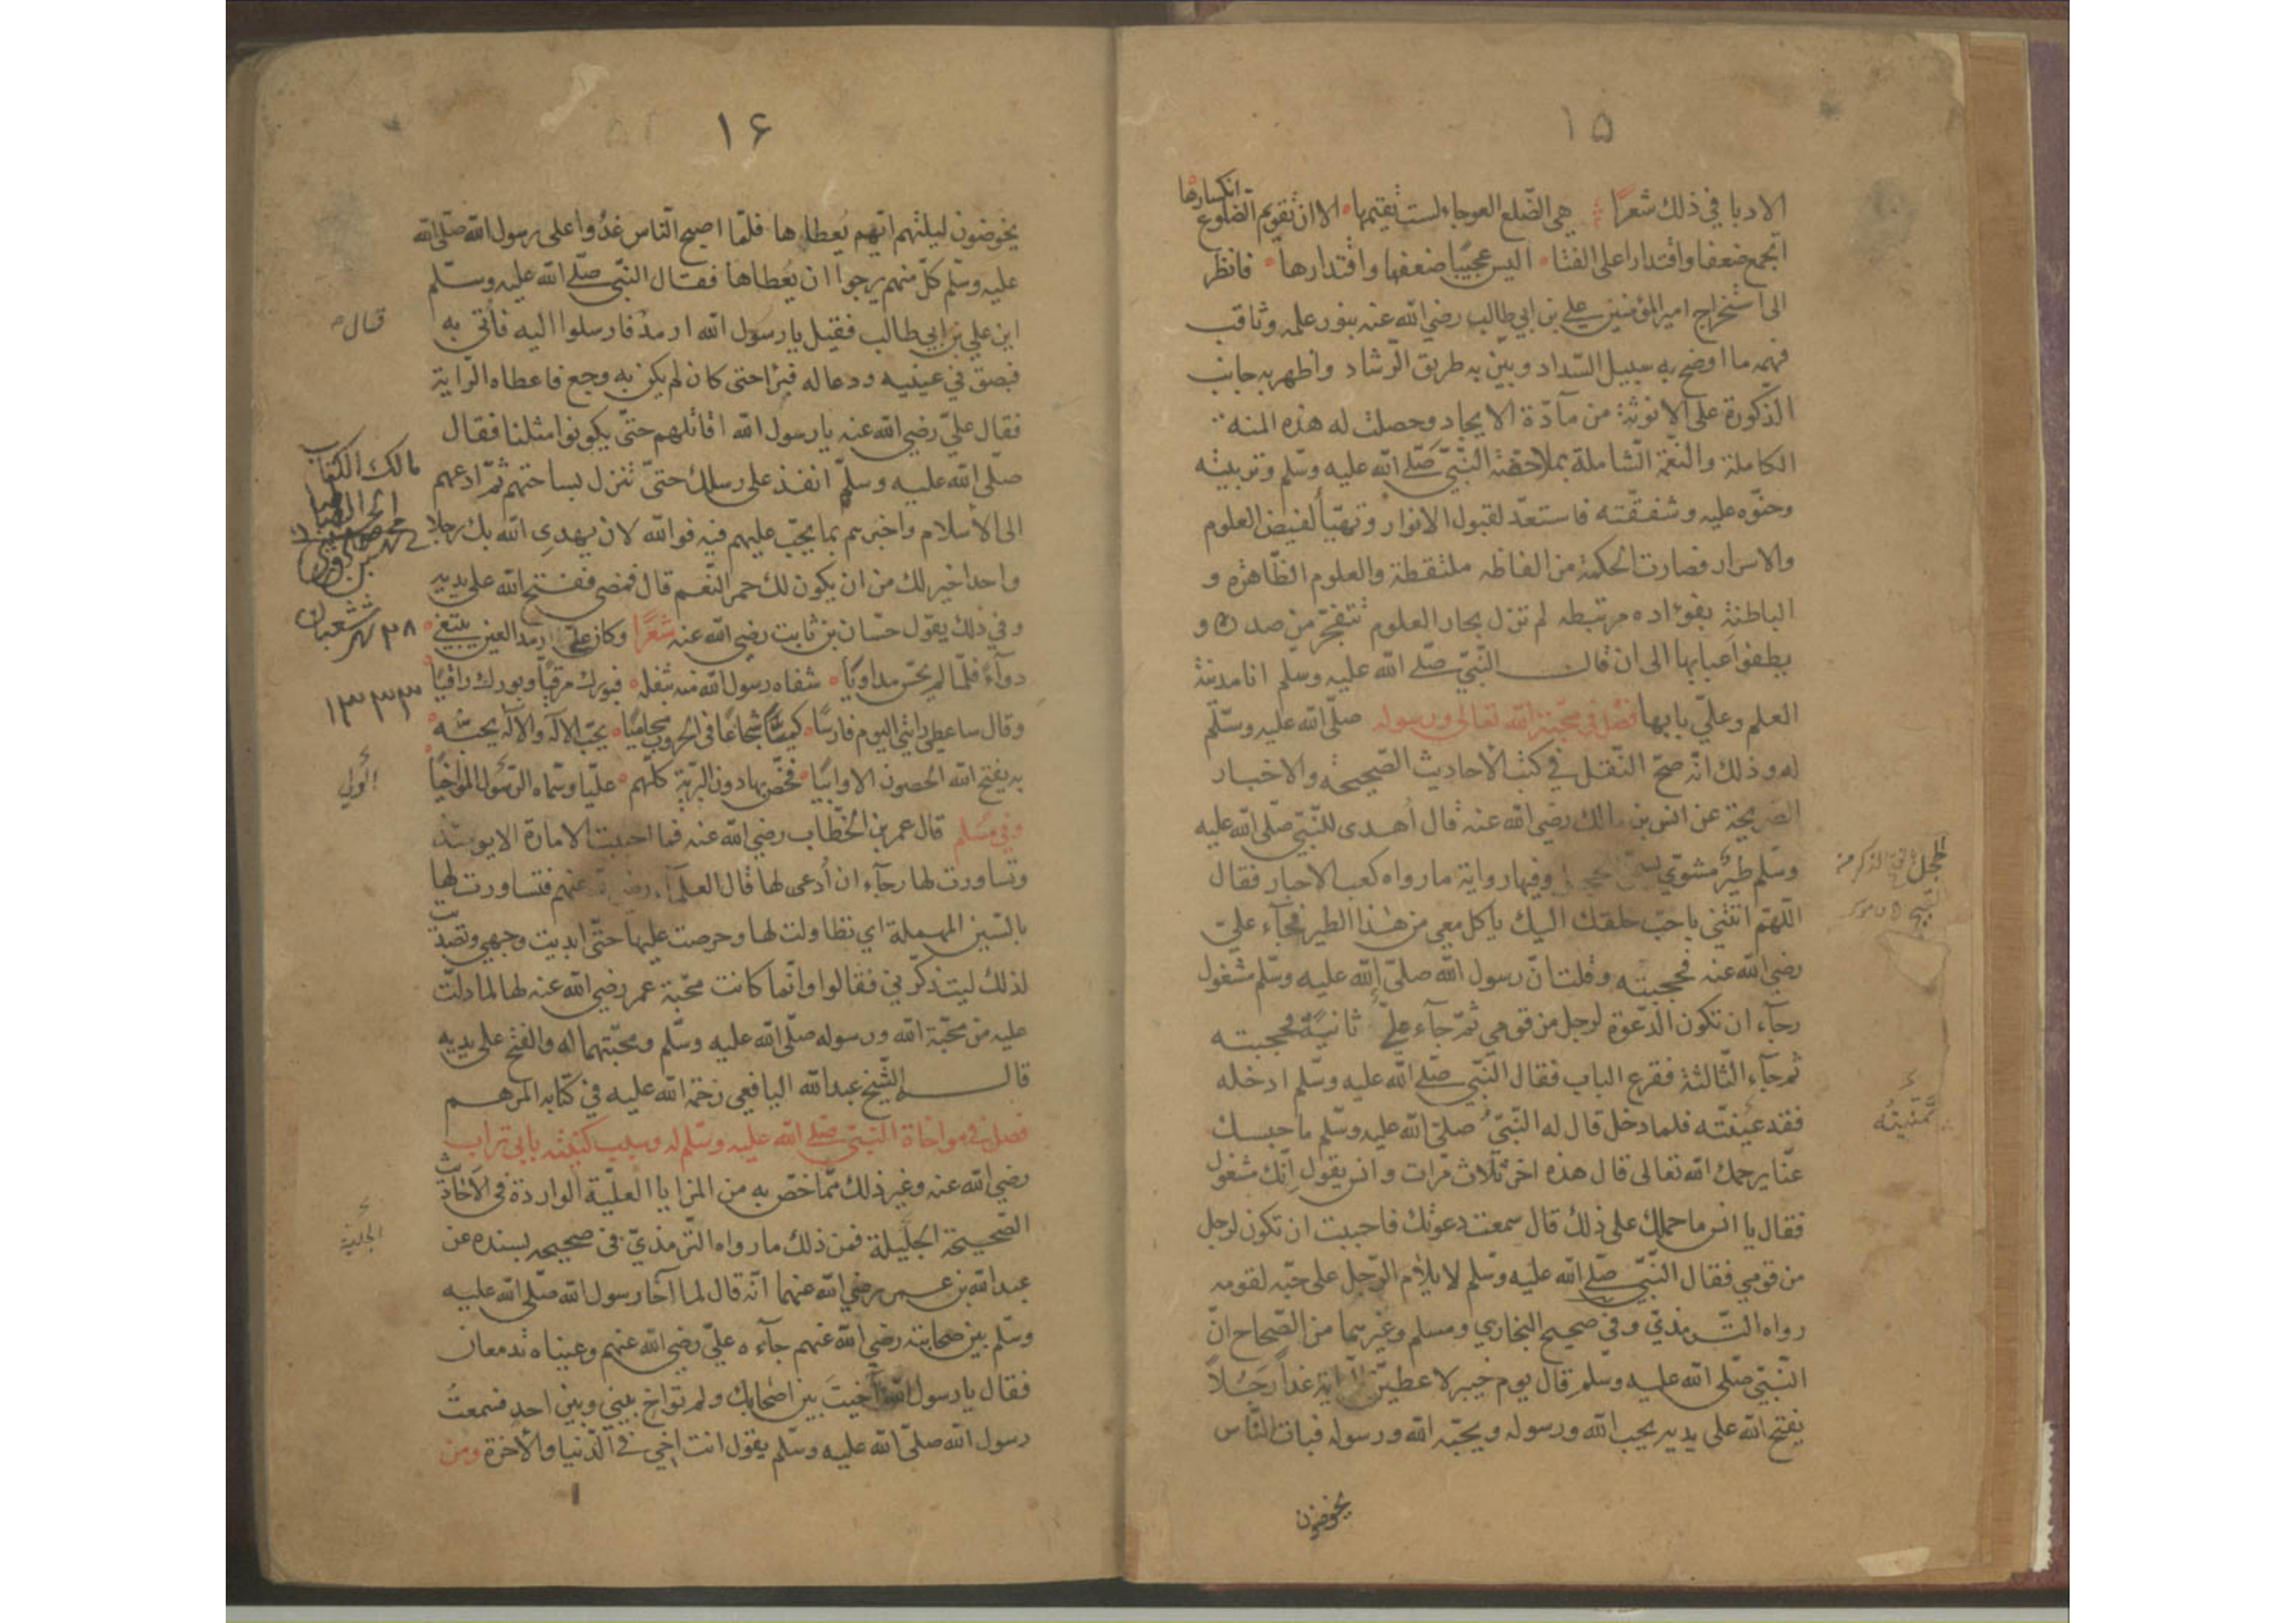 ١٥
الادبا في ذلك شعرًا هي الضلع العوجاء لست تقيمها الا ان تقويم الضلوع انكسارها
اتجمع ضعفا واقتدارا على الفتا اليس عجيبا ضعفها واقتدارها فانظر
الى استخراج امير المؤمنين علي بن ابي طالب رضي الله عنه بنور علمه وثاقب
فهمه ما اوضح به سبيل السّداد وبيّن به طريق الرّشاد واظهر به جانب
الذكورة على الانوثة من مآدّة الايجاد وحصلت له هذه المنه
الكاملة والنعمة الشاملة بملاحظة النّبيّ صلّى الله عليه وسلم وتربيته
وحنوّه عليه وشفقته فاستعدّ لقبول الانوار وتهيّأ لفيض العلوم
والاسرار فصارت الحكمة من الفاظه ملتقطة والعلوم الظّاهره و
الباطنة بفؤاده مرتبطه لم تزل بحار العلوم تتفجّر من صدره و
يطفوا عبابها الى ان قال النّبيّ صلّى الله عليه وسلم انا مدينة
العلم وعليّ بابها فصل في محبّة الله تعالى ورسوله صلّى الله عليه وسلّم
له وذلك انّه صحّ النّقل في كتب الأحاديث الصّحيحه والاخبار
الصريحة عن انس بن مالك رضي الله عنه قال أهدى للنّبيّ صلّى الله عليه
وسلم طير مشويّ وفيها رواية ما رواه كعب الاحبار فقال
اللّهمّ ائتني باحبّ خلقك اليك ياكل معي من هذا الطير فجآء عليّ
رضي الله عنه فحجبته وقلت انّ رسول الله صلّى الله عليه وسلّم مشغول
رجآء ان تكون الدّعوة لرجل من قومي ثمّ جآء عليّ ثانيةً فحجبته
ثم جآء الثالثة فقرع الباب فقال النّبيّ صلّى الله عليه وسلّم ادخله
فقد عينته فلما دخل قال له النّبيّ صلّى الله عليه وسلّم ما حبسك
عنّا يرحمك الله تعالى قال هذه اخر ثلاث مرّات وانس يقول انّك مشغول
فقال يا انس ما حملك على ذلك قال سمعت دعوتك فاحببت ان تكون لرجل
من قومي فقال النّبيّ صلّى الله عليه وسلّم لا يلام الرّجل على حبّه لقومه
رواه الترمذيّ وفي صحيح البخاري ومسلم وغيرهما من الصّحاح انّ
النّبيّ صلّى الله عليه وسلّم قال يوم خيبر لاعطينّ الراية غدًا رجلًا
يفتح الله على يديه يحبّ الله ورسوله ويحبّه الله ورسوله فبات النّاس
يخوضون
١٦
يخوضون ليلتهم ايّهم يعطاها فلمّا اصبح النّاس غدوا على رسول الله صلّى الله
عليه وسلّم كلّ منهم يرجوا ان يُعطاها فقال النّبيّ صلّى الله عليه وسلّم
اين علي بن ابي طالب فقيل يا رسول الله ارمد فارسلوا اليه فأتي به
فبصق في عينيه ودعا له فبرأ حتى كان لم يكن به وجع فاعطاه الراية
فقال عليّ رضي الله عنه يا رسول الله اقاتلهم حتّى يكونوا مثلنا فقال
صلّى الله عليه وسلّم انفذ على رسلك حتّى تنزل بساحتهم ثمّ ادعهم
الى الأسلام واخبرهم بما يجب عليهم فيه فوالله لان يهدي الله بك رجلا
واحدا خير لك من ان يكون لك حمر النّعم قال فمضى ففتح الله على يديه
وفي ذلك يقول حسّان بن ثابت رضي الله عنه شعرًا وكان عليّ ارمد العين يبتغي
دوآءً فلمّا لم يحسّ مداويًا شفاه رسول الله منه بتفله فبورك مرقيًّا وبورك راقيًا
وقال ساعطي رايتي اليوم فارسًا كميّا شجاعًا في الحروب محاميًا يحبّ الآله والآله يحبّه
به يفتح الله الحصون الاوابيا فخصّ بها دون البريّة كلّهم عليّا وسمّاه الرّسول المواخيا
وفي مسلم قال عمر بن الخطّاب رضي الله عنه فما احببت الامارة الا يومئذ
وتساورت لها رجآء ان أدعى لها قال العلمآء رضي الله عنهم فتساورت لها
بالسّين المهملة اي تطاولت لها وحرصت عليها حتّى ابديت وجهي وتصدّيت
لذلك ليتذكّرني فقالوا وانّما كانت محبّة عمر رضي الله عنه لها لما دلّت
عليه من محبّة الله ورسوله صلّى الله عليه وسلّم ومحبّتهما له والفتح على يديه
قال الشّيخ عبد الله اليافعي رحمة الله عليه في كتابه المرهم
فصل في مواخاة النّبيّ صلّى الله عليه وسلّم له وسبب كنيته بابي تراب
رضي الله عنه وغير ذلك ممّا خصّ به من المزايا العليّة الواردة في الاحاديث
الصّحيحة الجليلة فمن ذلك ما رواه التّرمذيّ في صحيحه بسنده عن
عبد الله بن عمر رضي الله عنهما انّه قال لما آخا رسول الله صلّى الله عليه
وسلّم بين صحابته رضي الله عنهم جآءه عليّ رضي الله عنهم وعيناه تدمعان
فقال يا رسول الله آخيتَ بين اصحابك ولم تواخ بيني وبين احد فسمعتُ
رسول الله صلّى الله عليه وسلّم يقول انت اخي في الدّنيا والآخرة ومن
قال
مالك الكتاب
٢٨ شهر شعبان
١٣٣٣